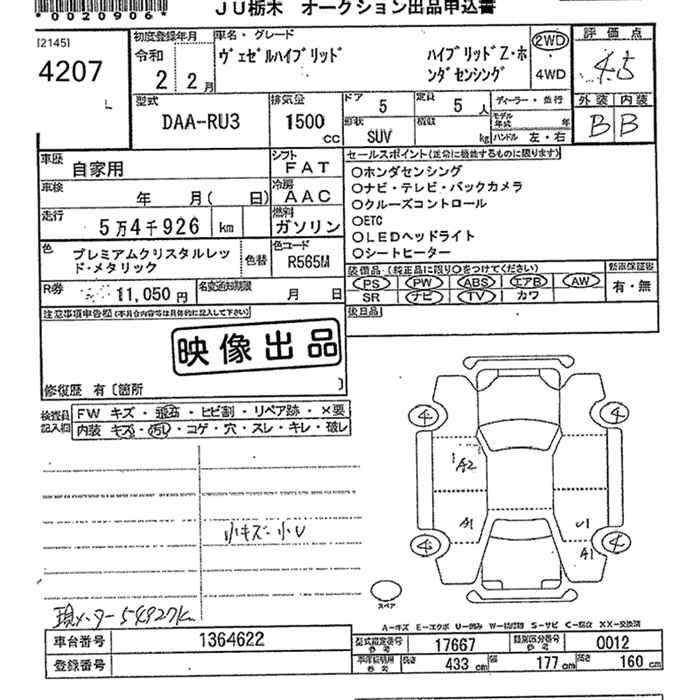 *0020906*
JU栃木 オークション出品申込書
[2145]
4207
L
初度登録年月
令和
2 2月
車名・グレード
ヴェゼルハイブリッド ハイブリッドZ・ホンダセンシング
2WD
4WD
評価点
4.5
外装 内装
B B
型式
DAA-RU3
排気量
1500
cc
ドア
5
定員
5人
形状
SUV
積載
kg
ディーラー・並行
モデル年式 年
ハンドル 左・右
車歴
自家用
シフト
FAT
車検
年 月( 日)
冷房
AAC
走行
5万4千926 km
燃料
ガソリン
色
プレミアムクリスタルレッド・メタリック
色替
色コード
R565M
R券
11,050円
名変通知期限
月 日
セールスポイント(正常に機能するものに限ります)
○ホンダセンシング
○ナビ・テレビ・バックカメラ
○クルーズコントロール
○ETC
○LEDヘッドライト
○シートヒーター
装備品(純正品に限り○をつけてください)
PS PW ABS エアB AW
SR ナビ TV カワ
新車保証書
有・無
後日品
注意事項申告欄(不具合内容等は具体的に記入して下さい)
映像出品
修復歴 有〔箇所 〕
検査員記入欄
FW キズ・飛石・ヒビ割・リペア跡・×要
内装 キズ・汚レ・コゲ・穴・スレ・キレ・破レ
小キズ 小U
現メーター 54927km
4 4
A2
A1 U1
A1
4 4
スペア
A-キズ E-エクボ U-凹み W-波打ち S-サビ C-腐食 XX-交換済
車台番号
1364622
登録番号
型式指定番号
参考
17667
類別区分番号
参考
0012
車両総明用
参考
長さ 433cm
幅 177cm
高さ 160cm